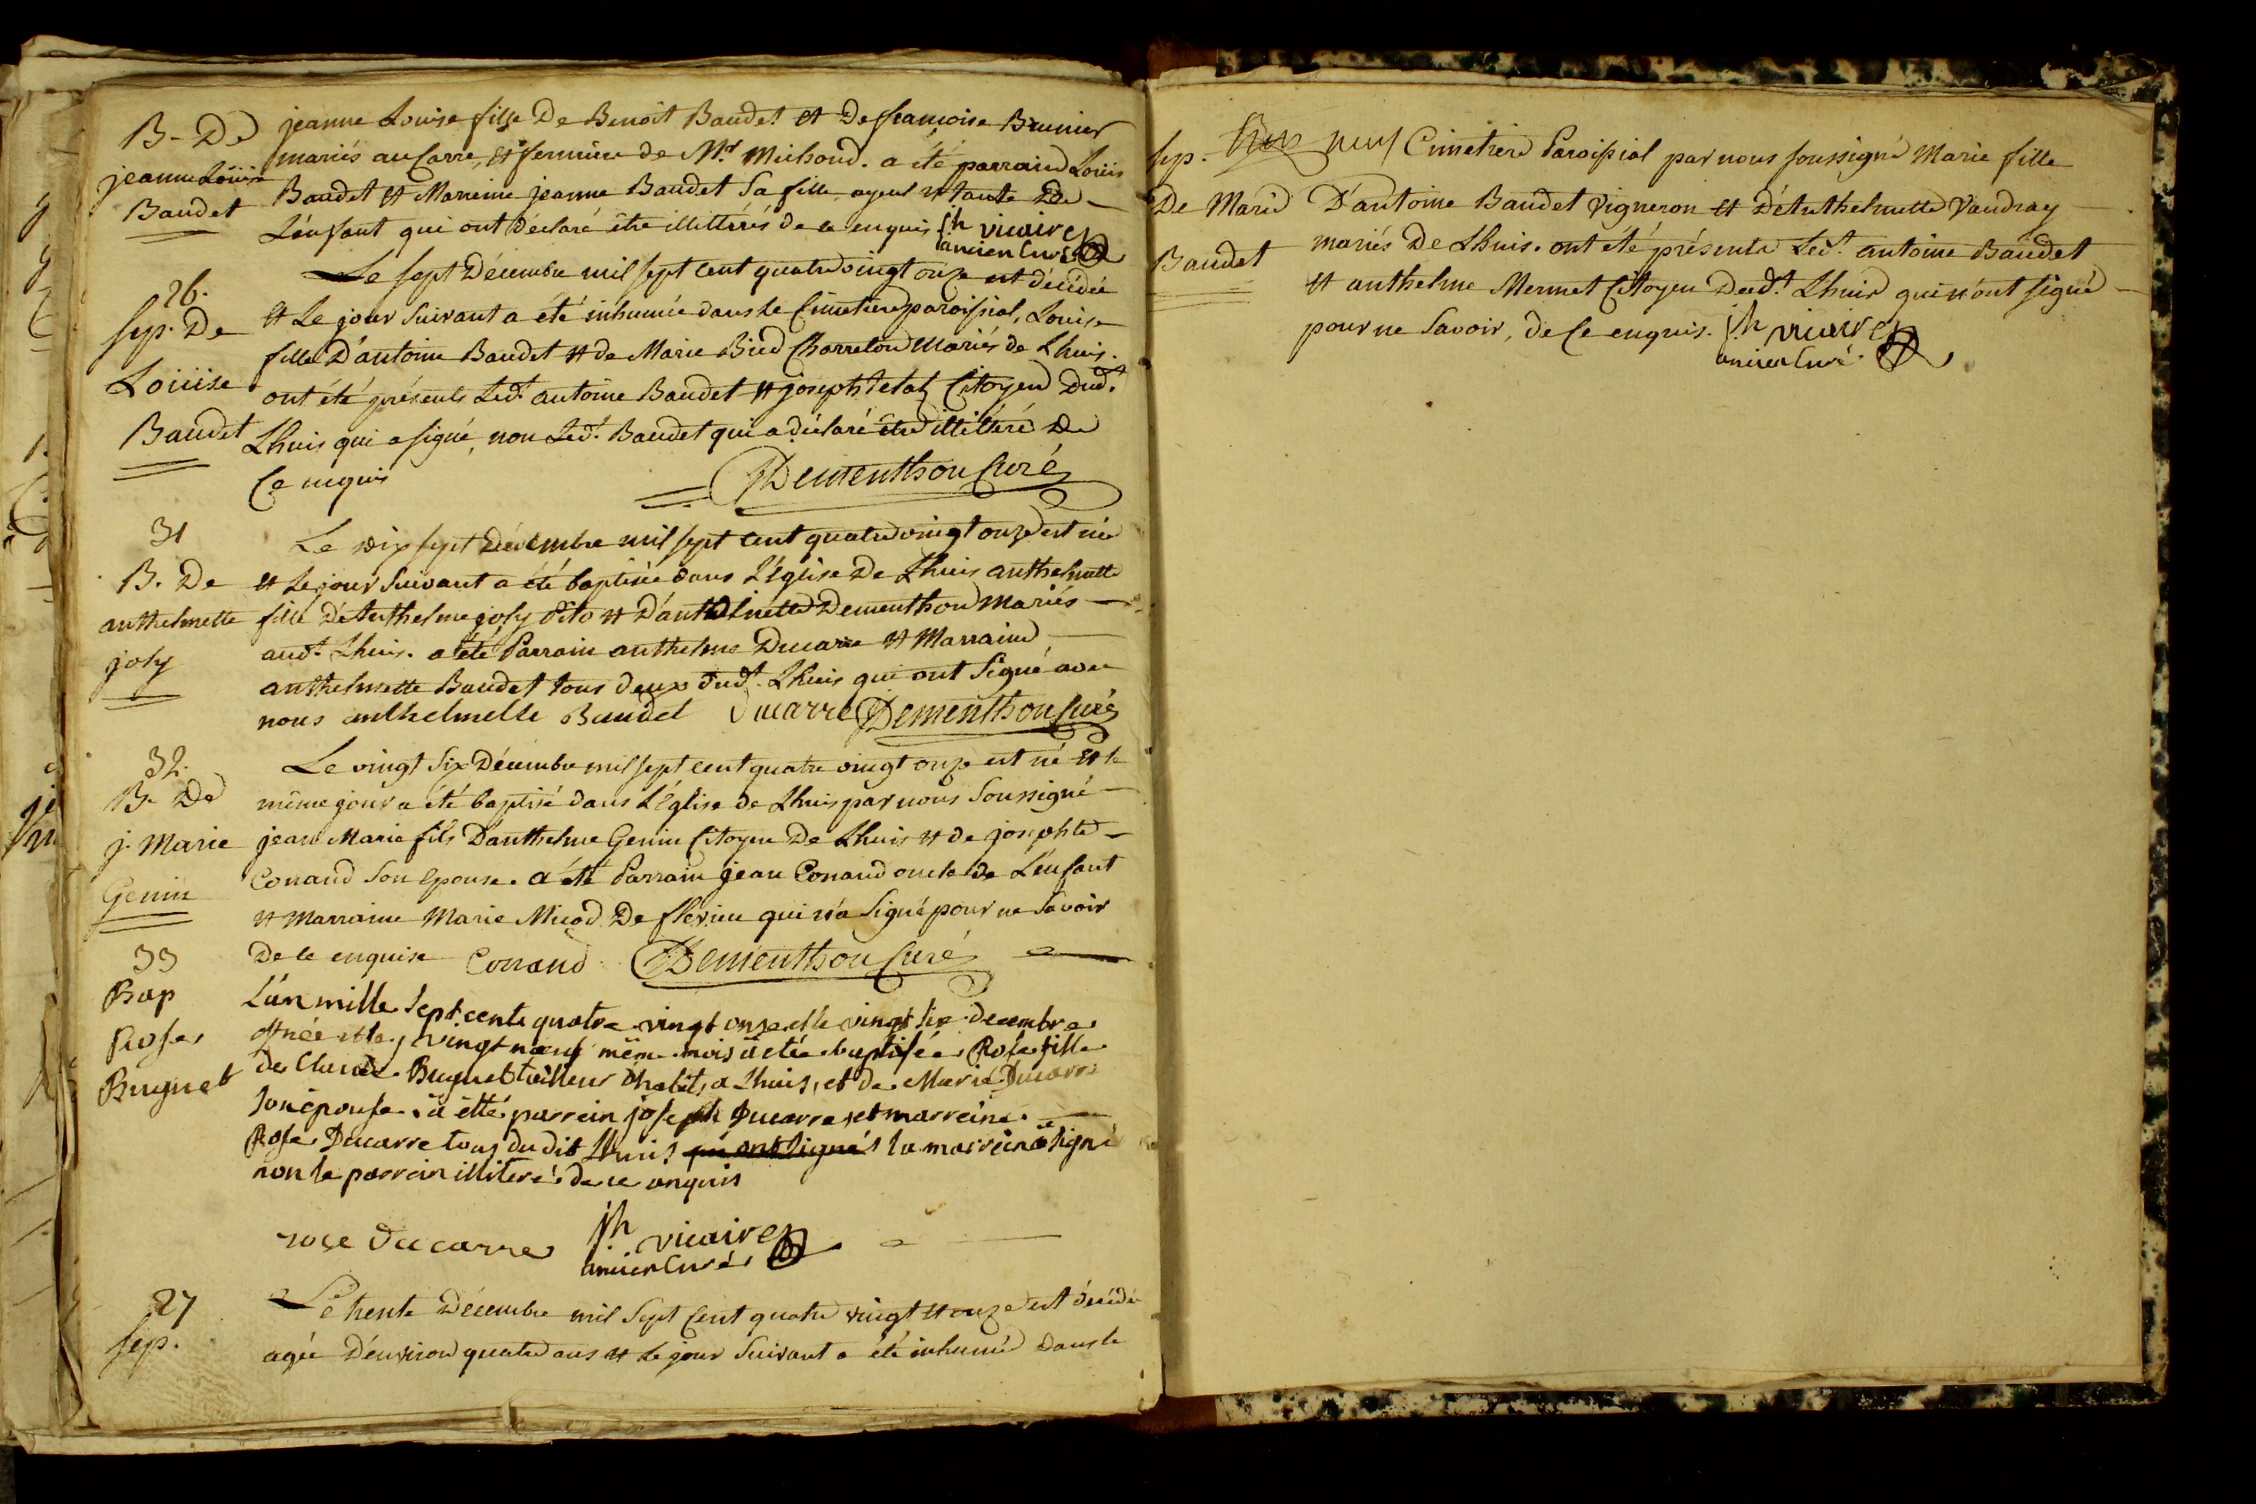 B- De
jeanne Loüise
Baudet
jeanne Louise fille De Benoit Baudet et De francoise Brunier
mariés au Carre, et fermiers de Mr. Michoud. a été parrain Loüis
Baudet et Marreine jeanne Baudet Sa fille ayeul et tante De
L'enfant qui ont Déclaré être illittérés de ce enquis jh vicaire
ancien Curé
26.
Sep. De
Loüise
Baudet
Le sept Décembre mil sept cent quatrevingt onze est décédée
et Le jour Suivant a été inhumée dans Le Cimetiere paroissial, Louise
fille D'antoine Baudet et de Marie Charreton Mariés de Lhuis.
ont été présents Ledt. antoine Baudet et joseph Citoyen Dudt.
Lhuis qui a signé, non Ledt. Baudet qui a déclaré être illittéré De
Ce enquis
Dementhon Curé
31
B. De
anthelmette
joly
Le dix sept Décembre mil sept cent quatrevingt onze est née
et Le jour Suivant a été baptisée dans L'église De Lhuis anthelmette
fille d'Anthelme joly dito et D'anthelmette Dementhon Mariés
audt. Lhuis. a été Parrain anthelme Ducarre et Marraine
anthelmette Baudet tous deux dudt. Lhuis qui ont Signé avec
nous anthelmette Baudet Ducarre Dementhon Curé
32.
B. De
j. Marie
Genin
Le vingt Six Décembre mil sept cent quatre vingt onze est né et le
même jour a été baptisé dans L'église de Lhuis par nous Soussigné
jean Marie fils D'anthelme Genin Citoyen De Lhuis et de josephte
Conand Son épouse. a été Parrain jean Conand oncle de L'enfant
et Marraine Marie Micod De flerieu qui n'a Signé pour ne Savoir
De ce enquise Conand Dementhon Curé
33
Bap
Rose
Buynet
L'an mille Sept cents quatre vingt onze et le vingt six decembre
est née et le vingt neuf même mois a etée baptisée Rose fille
de Claude Buynet tailleur d'habits a Lhuis, et de Marie Ducarre
son épouse. a été parrein joseph Ducarre et marreine
Rose Ducarre tous du dit Lhuis qui ont signés la marreine a signé
non le parrein illiteré de ce enquis
rose ducarre jh vicaire
ancien Curé
27
Sep.
Le trente Décembre mil Sept Cent quatre vingt et onze est décédée
agée D'environ quatre ans et Le jour Suivant a été inhumée Dans le
Sep.
De Marie
Baudet
Cimetiere Paroissial par nous soussigné Marie fille
D'antoine Baudet Vigneron et D'Anthelmette Vaudray
mariés De Lhuis. ont été présents Ledt. antoine Baudet
et anthelme Mermet Citoyen Dudt. Lhuis qui n'ont signé
pour ne Savoir, de Ce enquis. jh vicaire
ancien Curé.